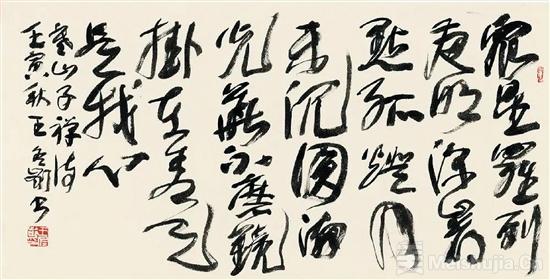 眾星羅列
夜明深岩
點孤燈月
未沉圓滿
光華不磨鏡
掛在青天
是我心
寒山子禪詩
壬寅秋王冬齡書
Meishujia.cn